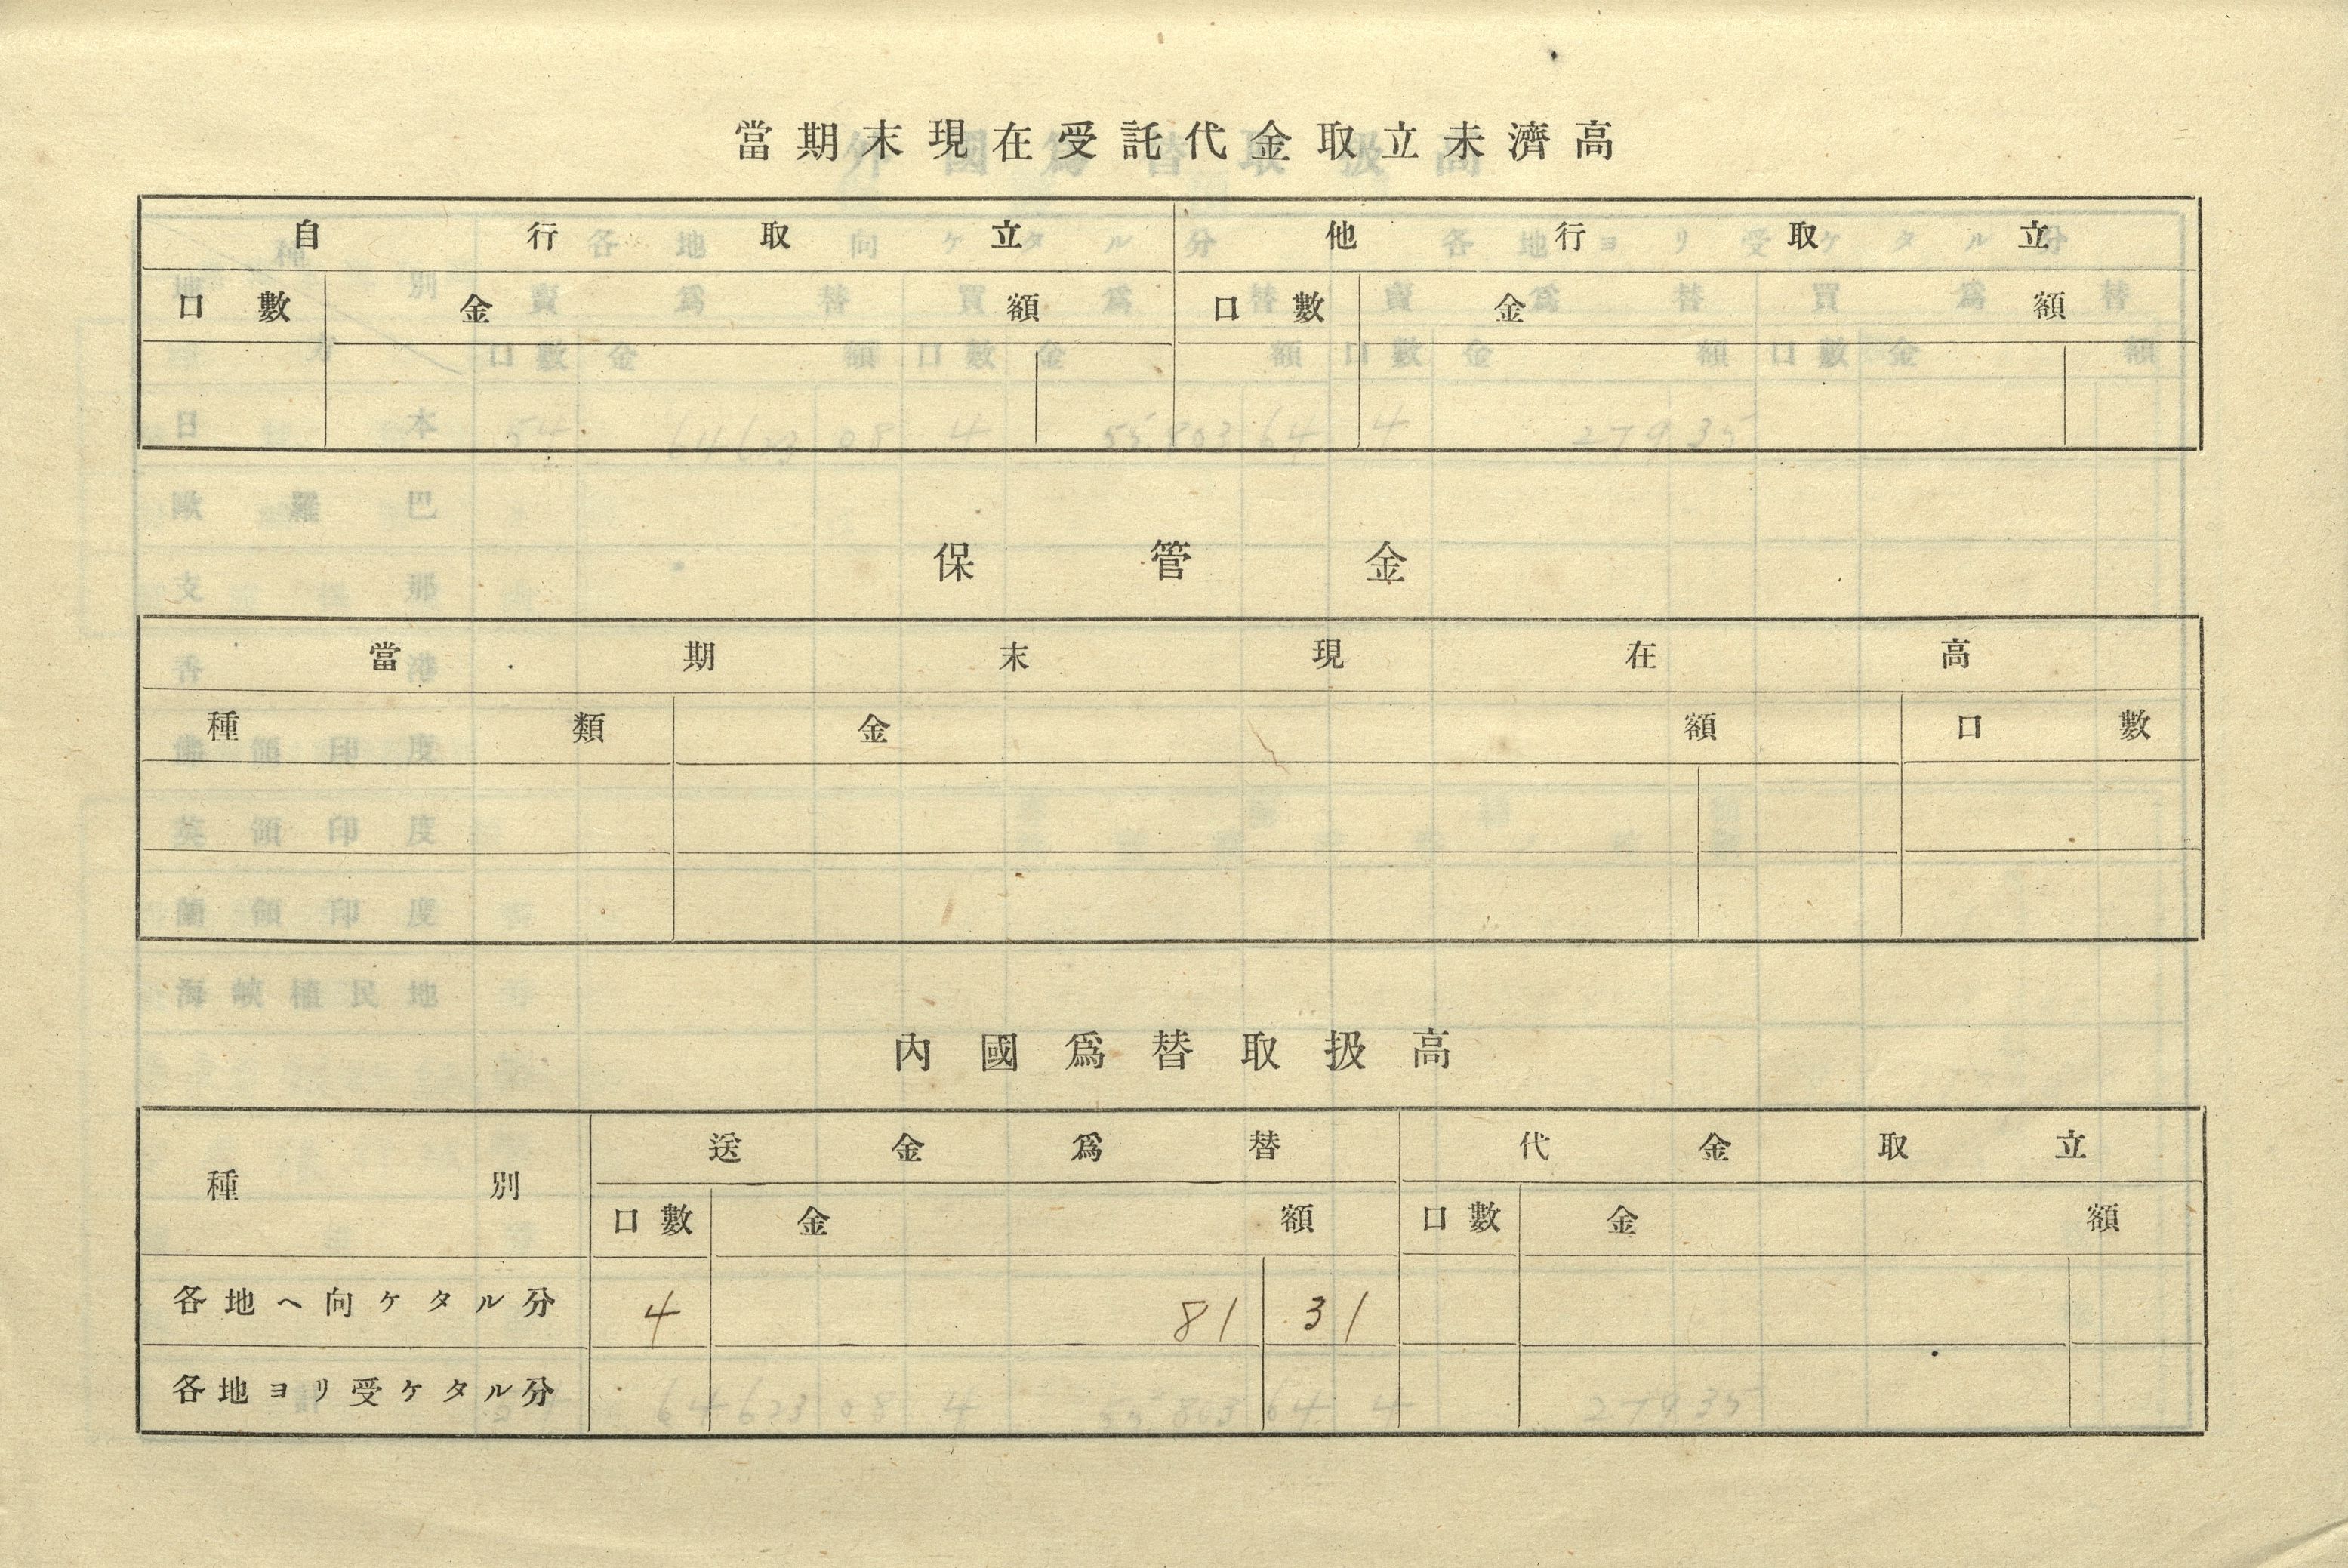 當期末現在受託代金取立未濟高
自行取立 他行取立
口數 金額 口數 金額
保管金
當期末現在高
種類 金額 口數
內國爲替取扱高
種別 送金爲替 代金取立
口數 金額 口數 金額
各地へ向ケタル分 4 81 31
各地ヨリ受ケタル分